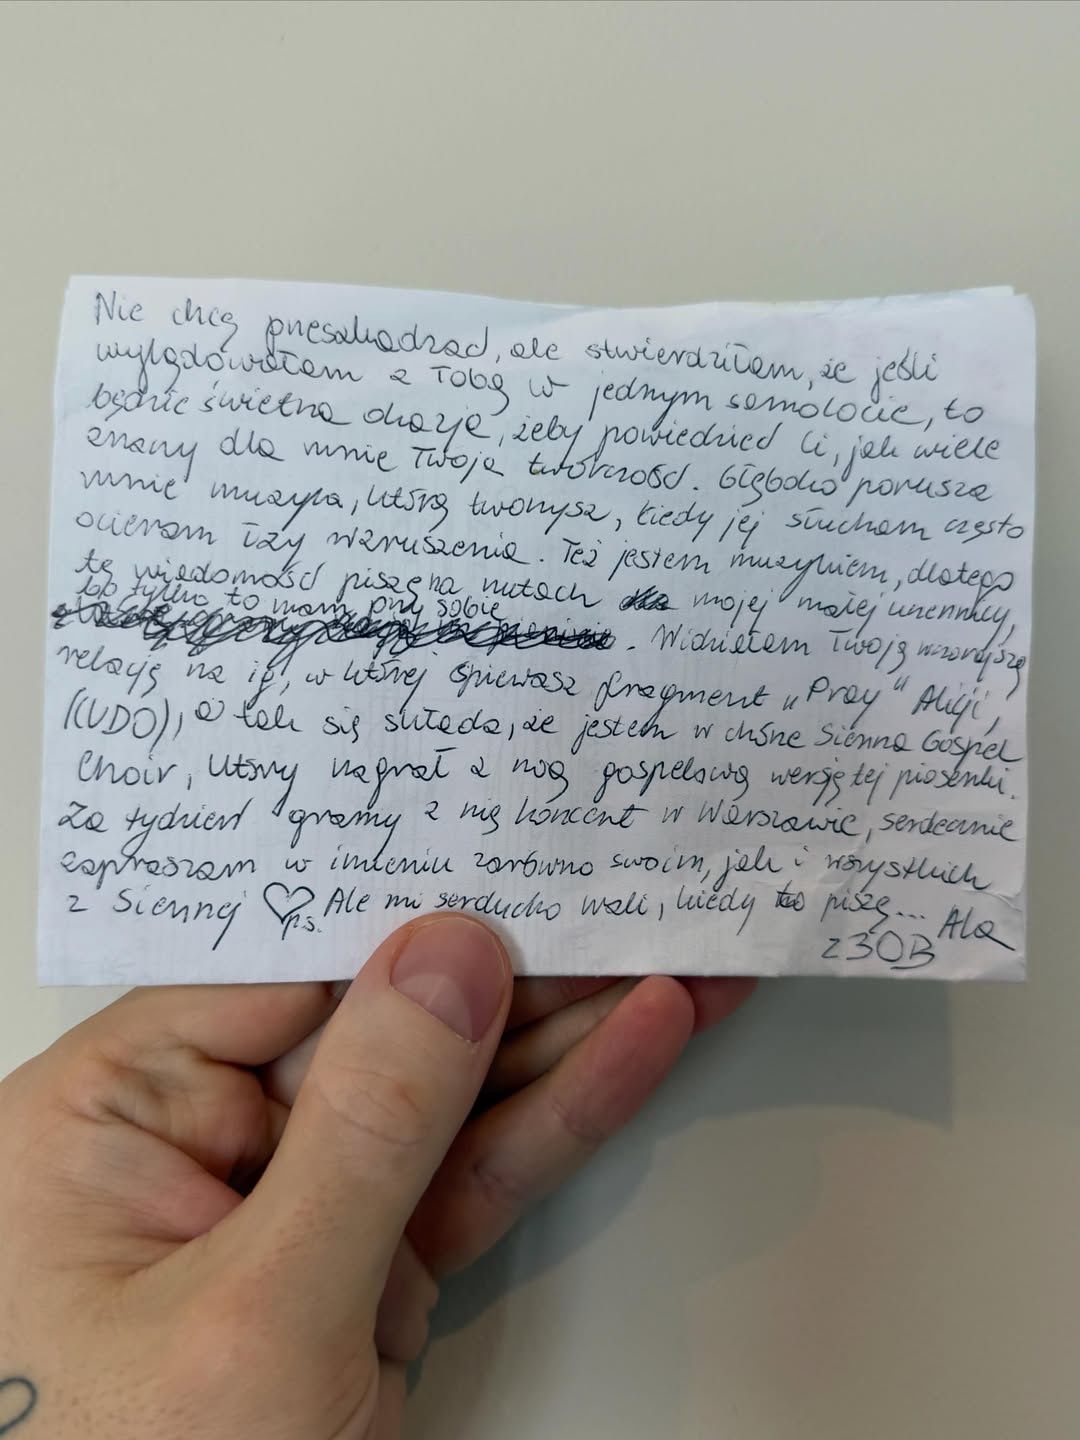 Nie chcę przeszkadzać, ale stwierdziłam, że jeśli
wylądowałam z Tobą w jednym samolocie, to
będzie świetna okazja, żeby powiedzieć Ci, jak wiele
znaczy dla mnie Twoja twórczość. Głęboko porusza
mnie muzyka, którą tworzysz, kiedy jej słucham często
ocieram łzy wzruszenia. Też jestem muzykiem, dlatego
tę wiadomość piszę na nutach mojej małej uczennicy,
bo tylko to mam przy sobie
. Widziałam Twoją wczorajszą
relację na ig, w której śpiewasz fragment „Pray" Alicji,
(CUDO), a tak się składa, że jestem w chórze Sienna Gospel
Choir, który nagrał z nią gospelową wersję tej piosenki.
Za tydzień gramy z nią koncert w Warszawie, serdecznie
zapraszam w imieniu zarówno swoim, jak i wszystkich
z Siennej ♡ p.s. Ale mi serducho wali, kiedy to piszę... Ala
z 30B